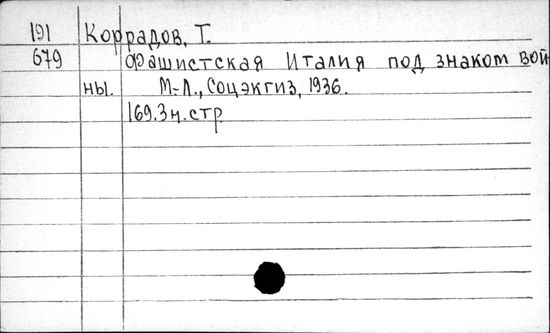 191 Коррадов, Т.
679 Фашистская Италия под знаком вой-
ны. М.-Л., Соцэкгиз, 1936.
169.3н.стр.